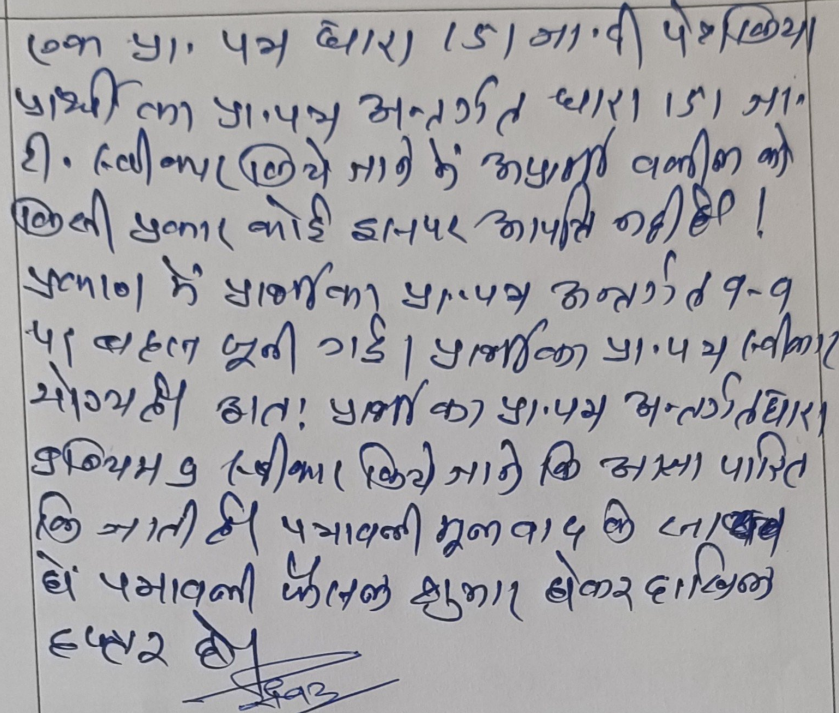 एक प्रा. पत्र धारा 151 जा.दी पेश किया
प्रार्थी का प्रा.पत्र अन्तर्गत धारा 151 जा.
दी. स्वीकार किये जाने में अप्रार्थी वकील को
किसी प्रकार कोई इसपर आपति नही है !
प्रकरण में प्रार्थी का प्रा.पत्र अन्तर्गत 9-9
पर बहस सूनी गई । प्रार्थी का प्रा.पत्र स्वीकार
योग्य है। अत: प्रार्थी का प्रा.पत्र अन्तर्गत धारा
9 स्वीकार किये जाने कि पारित
कि जाती है। पत्रावली मूल वाद के साथ
पत्रावली फैसल शुमार होकर दाखिल
दफ्तर हो।